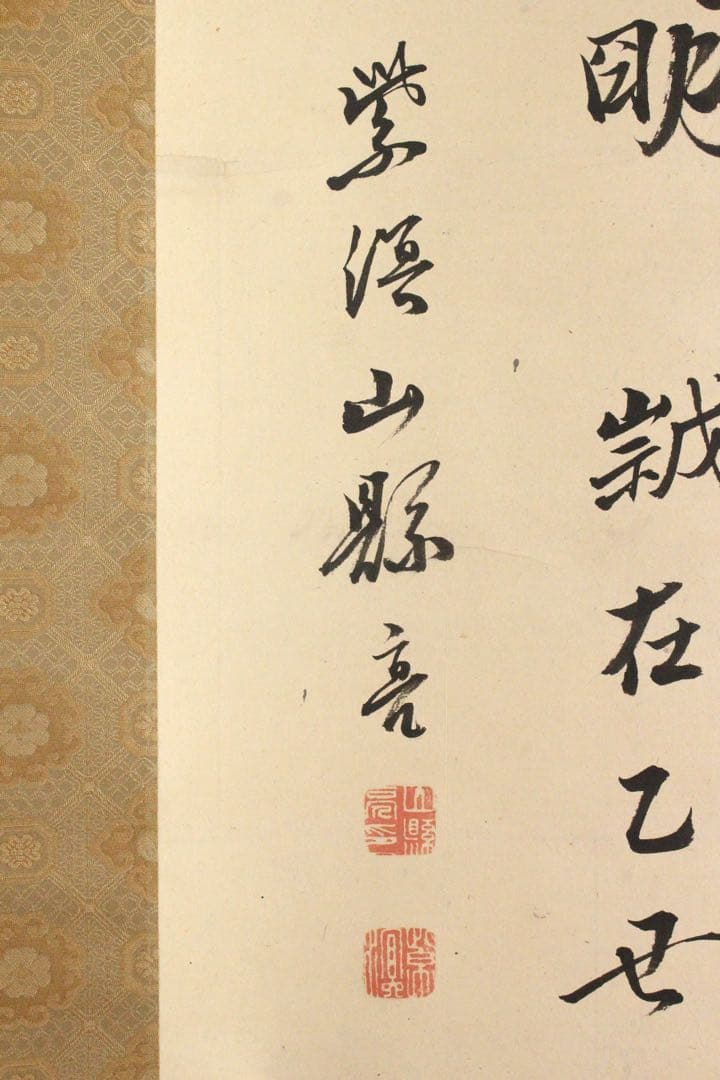 誠在乙丑
紫溟山縣亮
山縣亮印
紫溟